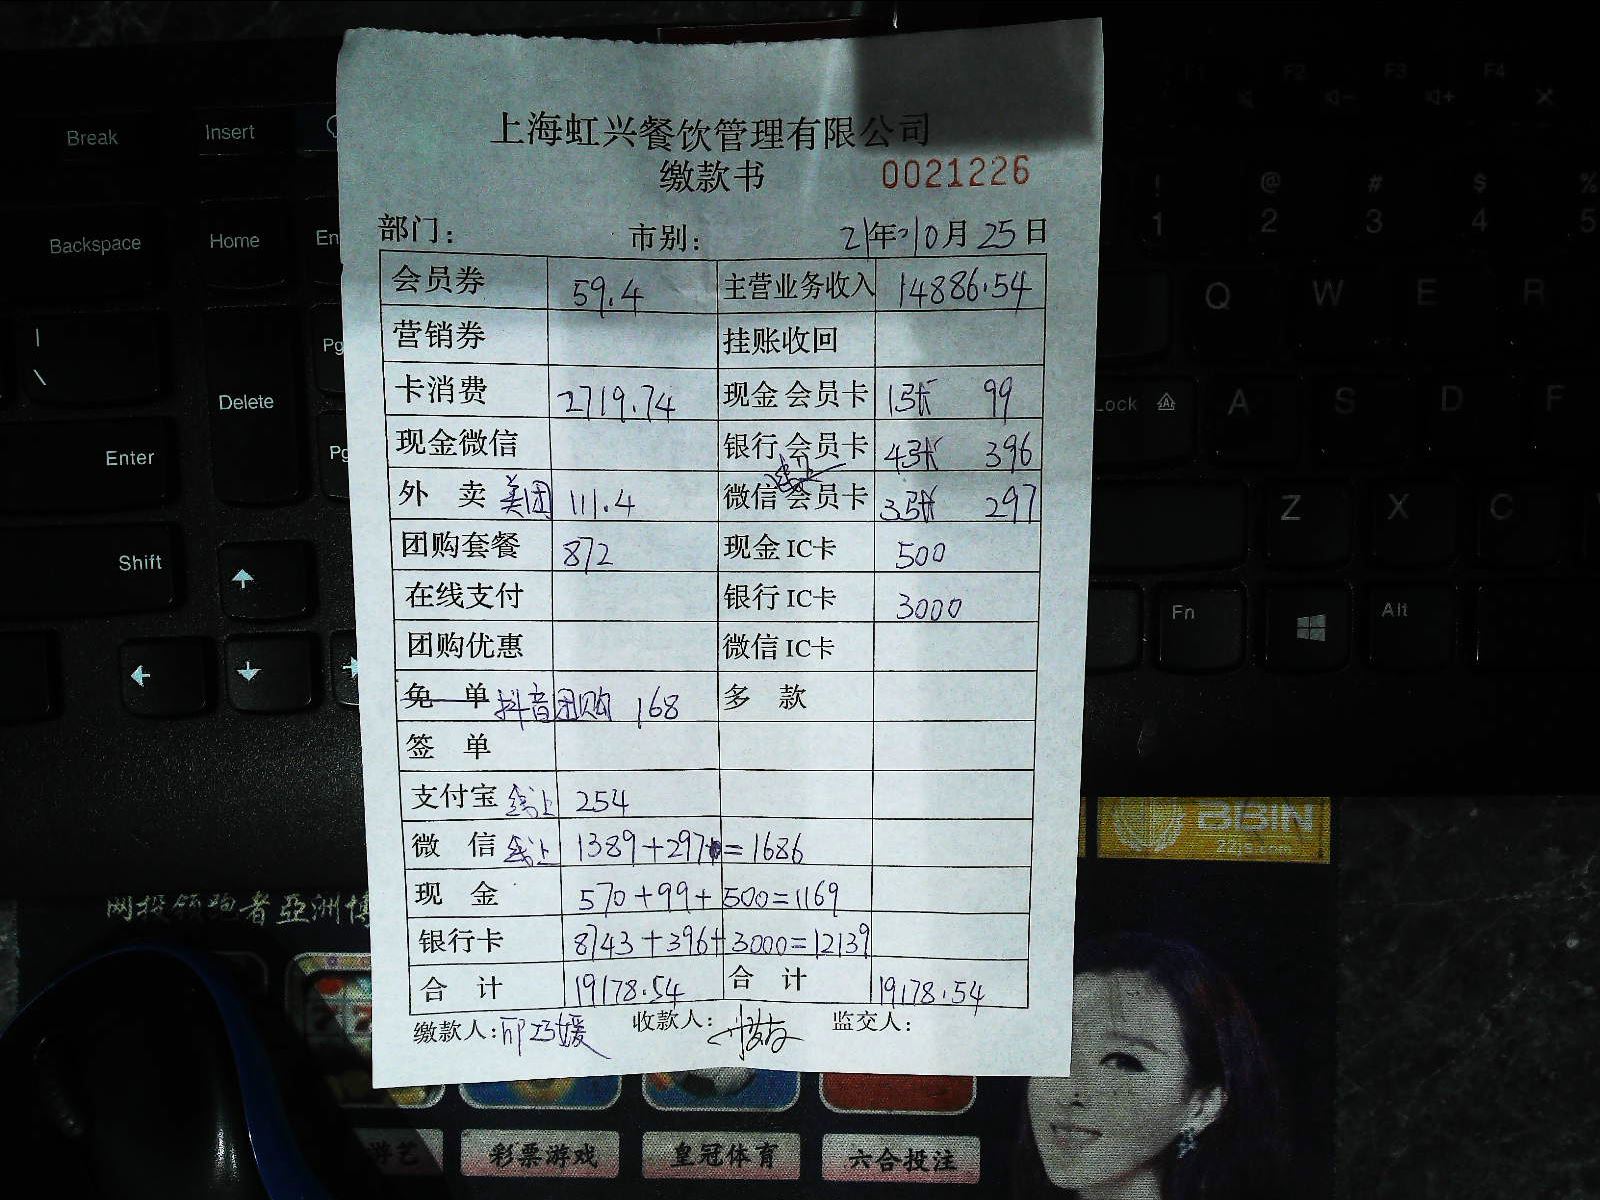 上海虹兴餐饮管理有限公司
缴款书 0021226
部门: 市别: 21年10月25日
会员券 59.4 主营业务收入 14886.54
营销券 挂账收回
卡消费 2719.74 现金会员卡 1张 99
现金微信 银行会员卡 4张 396
外 卖 美团 111.4 微信线上会员卡 3张 297
团购套餐 872 现金IC卡 500
在线支付 银行IC卡 3000
团购优惠 微信IC卡
免 单 抖音团购 168 多 款
签 单
支付宝 线上 254
微 信 线上 1389+297=1686
现 金 570+99+500=1169
银行卡 8743+396+3000=12139
合 计 19178.54 合 计 19178.54
缴款人: 收款人: 监交人:
Break
Insert
Backspace
Home
Delete
Enter
Shift
F1 F2 F3 F4
! 1 @ 2 # 3 $ 4 % 5
Q W E R
Lock A S D F
Z X C
Fn Alt
BBIN
22js.com
网投领跑者亞洲博
游艺
彩票游戏
皇冠体育
六合投注